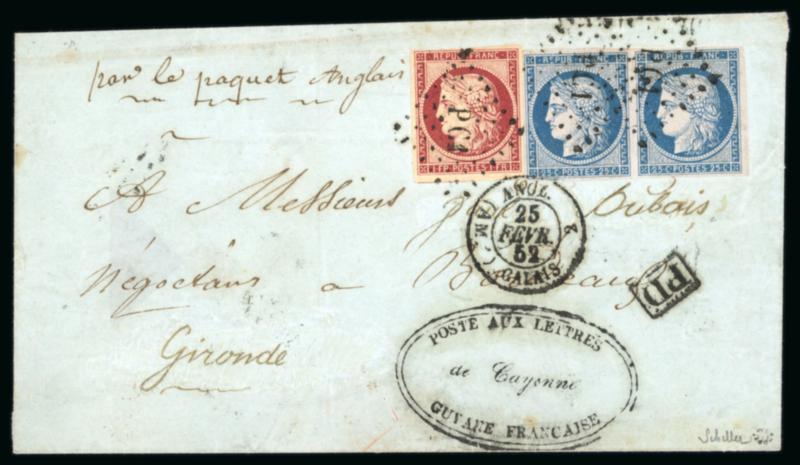 par le paquet Anglais
REPUB. FRANC.
1 FR POSTES 1 FR
REPUB. FRANC.
25 C POSTES 25 C
REPUB. FRANC.
25 C POSTES 25 C
PC1
A Messieurs
négociants a
Gironde
ANGL.
25
FEVR.
52
CALAIS
2
AM
PD
POSTE AUX LETTRES
de Cayenne
GUYANE FRANCAISE